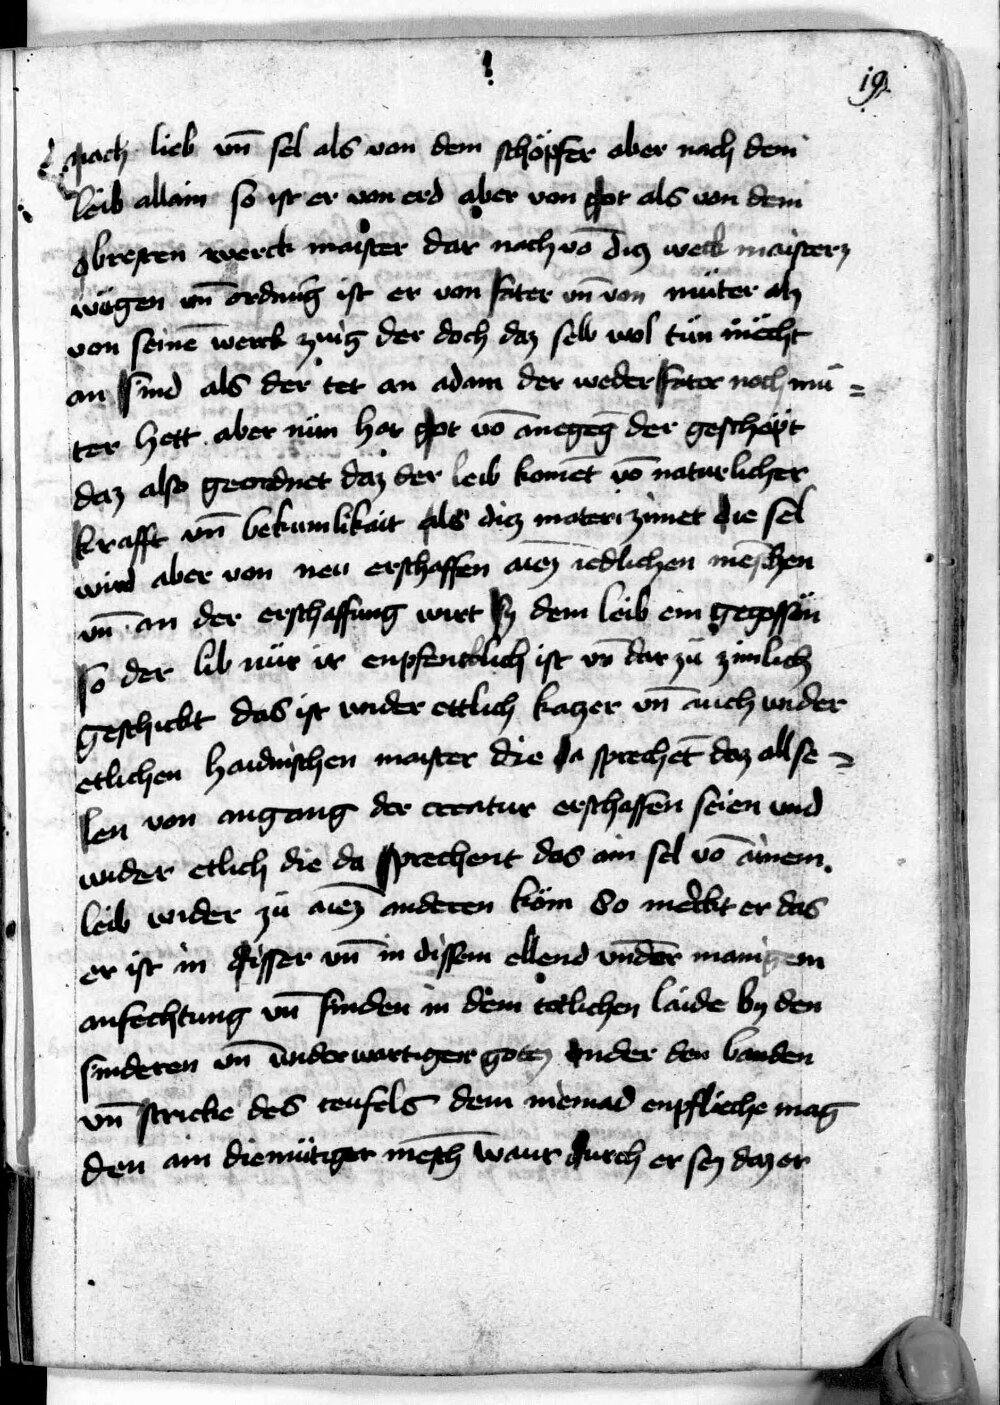 19
nach lieb vn̄ sel als von dem schöpfer aber nach dem
leib allain so ist er von erd aber von got als von dem
obresten werck maister dar nach vō diß welt maisterß
wägen vn̄ ordnūg ist er von fater vn̄ von müter alß
von seinē werck züig der doch daz selb wol tün möcht
an sind als der tet an adam der weder fater noch mü =
ter hett aber nün hat got vō anegēg der geschöpt
daz also geordnet daz der leib komēt vō naturlicher
krafft vn̄ bekumlikait als diß materi zimet die sel
wird aber von neu erschaffen aiēz iedlichen menschen
vn̄ an der erschaffung wirt sy dem leib ein gegossen
so der lib nür ir enpfentlich ist vn̄ dar zü zimlich
geschickt das ist wider ettlich katzer vn̄ auch wider
etlichen haidnischen maister die da sprechēt daz all se =
len von angang der creatur erschaffen seien und
wider etlich die da sprechent das ain sel vō ainem
leib wider zü aiēz anderen köm So merkt er das
er ist in disser vn̄ in dissem ellend vnder manigem
anfechtung vn̄ sinden in dem totlichen laide by den
sinderen vn̄ widerwärtiger gotez vnder den banden
vn̄ stricke des teufels dem niemād enpflieche mag
den ain diemütiger mēsch waur durch er sey daz er